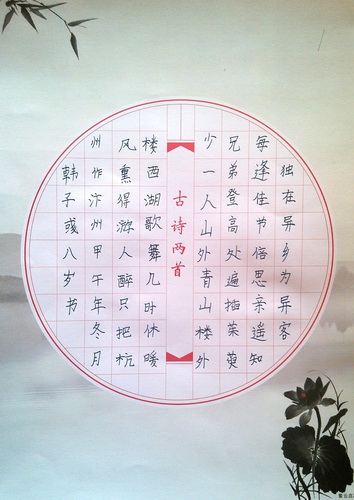 独在异乡为异客
每逢佳节倍思亲遥知
兄弟登高处遍插茱萸
少一人山外青山楼外
古诗两首
楼西湖歌舞几时休暖
风熏得游人醉只把杭
州作汴州甲午年冬月
韩子彧八岁书